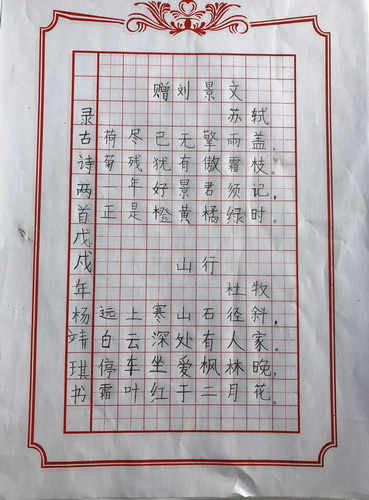 赠刘景文
苏轼
荷尽已无擎雨盖。
菊残犹有傲霜枝。
一年好景君须记，
正是橙黄橘绿时。
山行
杜牧
远上寒山石径斜，
白云深处有人家。
停车坐爱枫林晚，
霜叶红于二月花。
录古诗两首戊戌年杨靖琪书